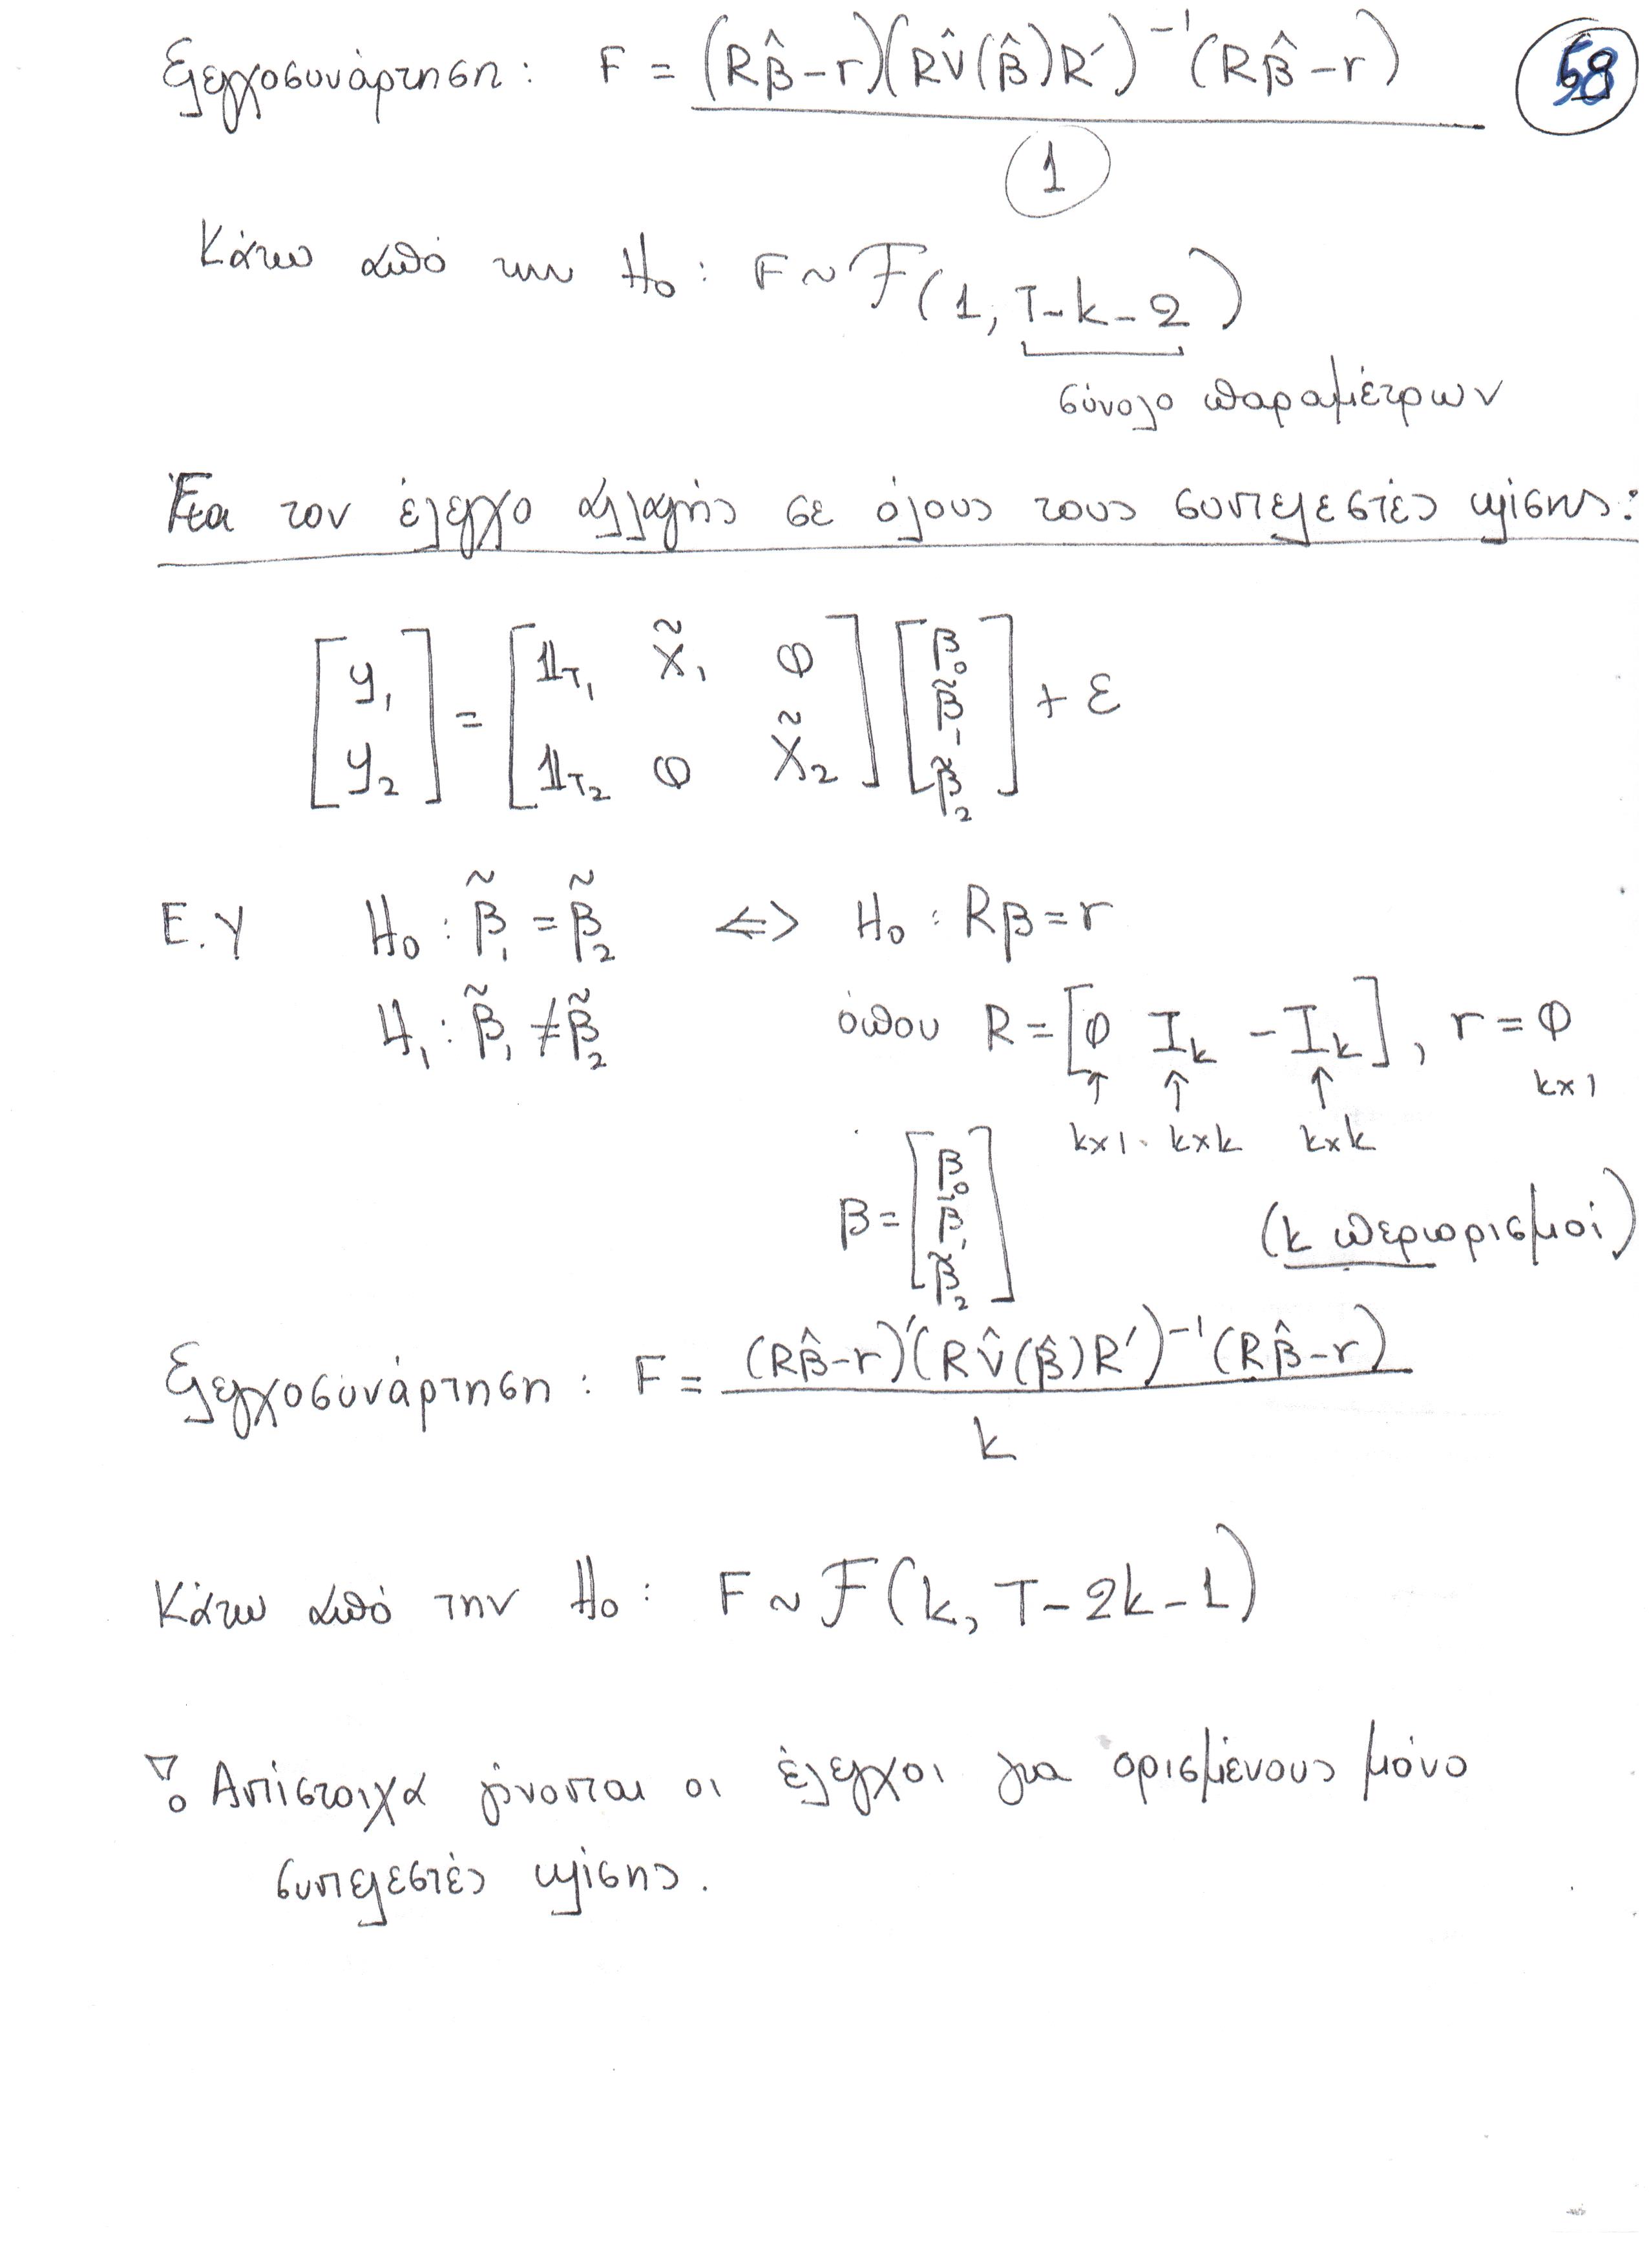 Ελεγχοσυνάρτηση: F = (Rβ̂-r)(RV̂(β̂)R′)⁻¹(Rβ̂-r) / 1
Κάτω από την H₀: F ~ F(1, T-k-2)
σύνολο παραμέτρων
Για τον έλεγχο αλλαγής σε όλους τους συντελεστές κλίσης:
[y₁ ; y₂] = [𝟙_T₁ X̃₁ 0 ; 𝟙_T₂ 0 X̃₂] [β₀ ; β̃₁ ; β̃₂] + ε
Ε.Υ H₀: β̃₁ = β̃₂ <=> H₀: Rβ = r
H₁: β̃₁ ≠ β̃₂ όπου R = [0 I_k -I_k], r = 0
k×1 k×k k×k k×1
β = [β₀ ; β̃₁ ; β̃₂] (k περιορισμοί)
Ελεγχοσυνάρτηση: F = (Rβ̂-r)′(RV̂(β̂)R′)⁻¹(Rβ̂-r) / k
Κάτω από την H₀: F ~ F(k, T-2k-1)
Αντίστοιχα γίνονται οι έλεγχοι για ορισμένους μόνο
συντελεστές κλίσης.